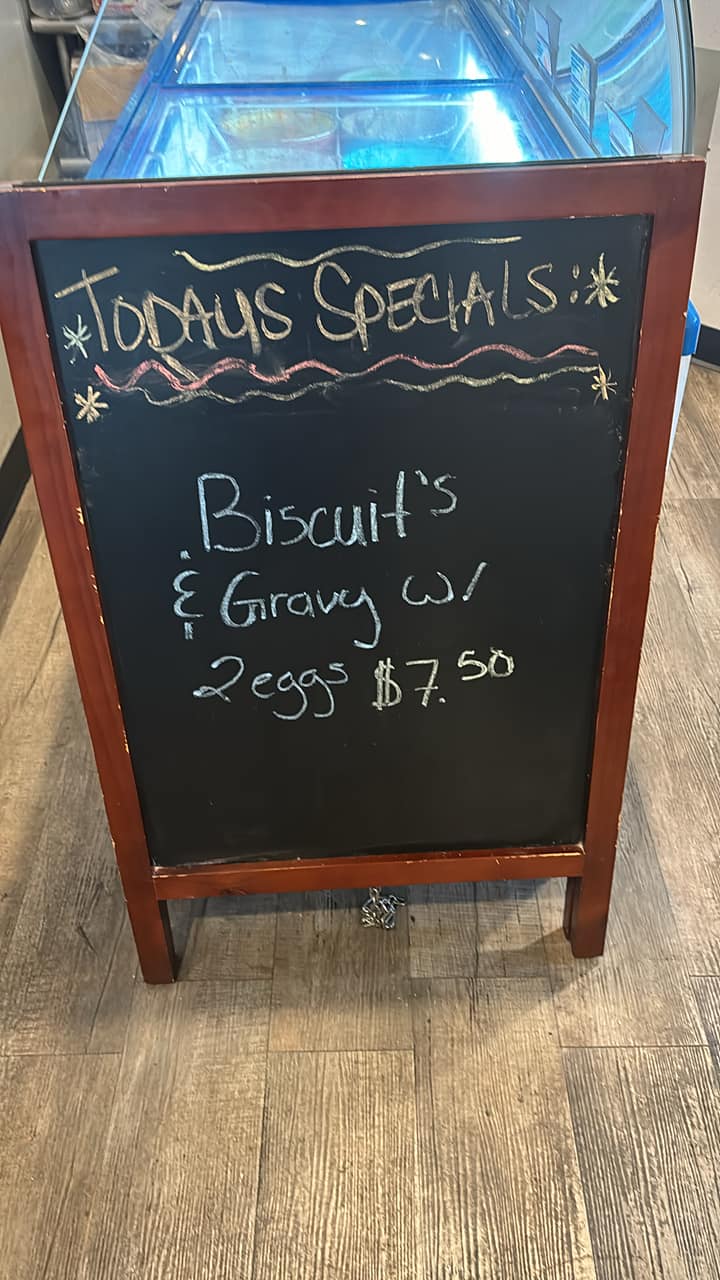 TODAYS SPECIALS:
Biscuit's
& Gravy w/
2 eggs $7.50